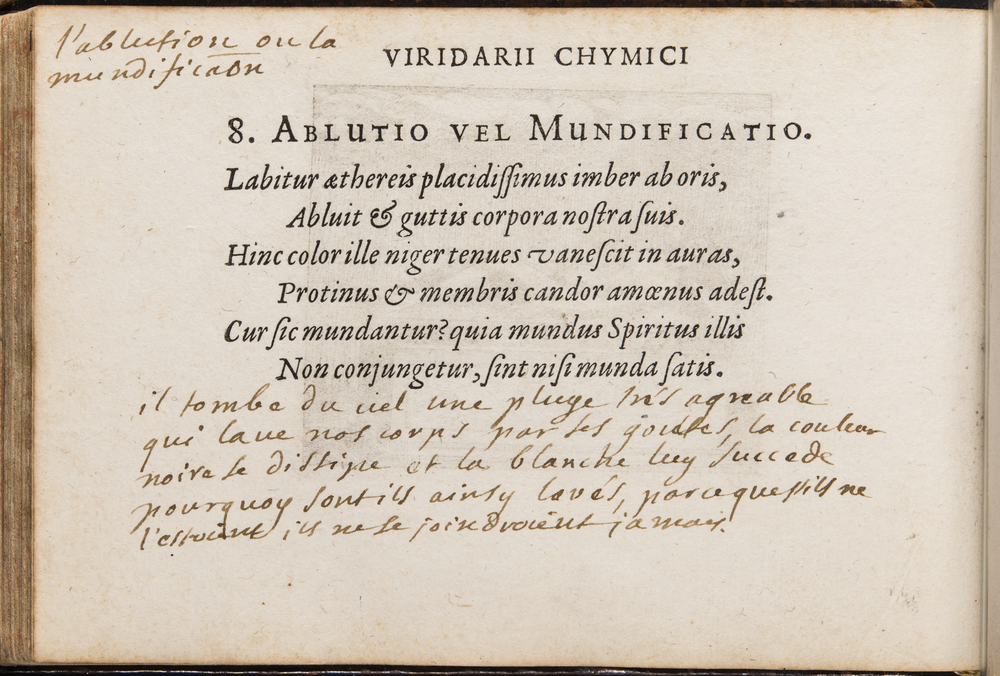 l'ablution ou la
mundificaon
VIRIDARII CHYMICI
8. ABLUTIO VEL MUNDIFICATIO.
Labitur æthereis placidiſſimus imber ab oris,
Abluit & guttis corpora noſtra ſuis.
Hinc color ille niger tenues vaneſcit in auras,
Protinus & membris candor amœnus adeſt.
Cur ſic mundantur? quia mundus Spiritus illis
Non conjungetur, ſint niſi munda ſatis.
il tombe du ciel une pluye tres agreable
qui lave nos corps par ses goutes, la couleur
noire se dissipe et la blanche luy succede
pourquoy sont ils ainsy lavés, parceque s'ils ne
l'estoient, ils ne se joindroient jamais.